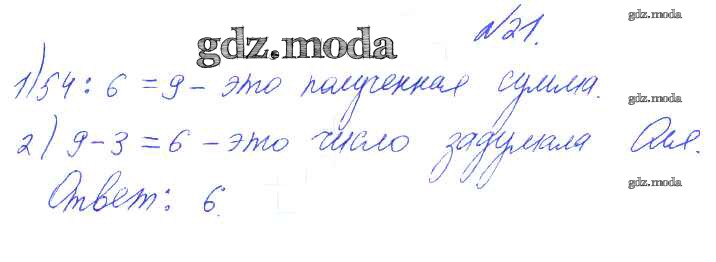 №21.
gdz.moda
gdz.moda
1) 54 : 6 = 9 - это полученная сумма.
gdz.moda
2) 9 - 3 = 6 - это число задумала Оля.
gdz.moda
Ответ: 6.